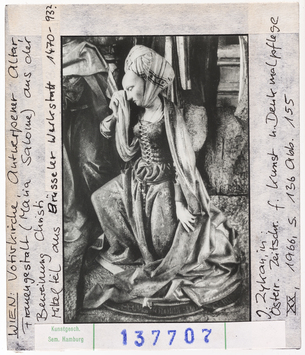 WIEN: Votivkirche, Antwerpener Altar
Frauengestalt (Maria Salome) aus der
Beweinung Christi
Mitteltei aus Brüsseler Werkstatt 1470-932
J. Zykan, in
Österr. Zeitschr. f. Kunst u. Denkmalpflege
XX, 1966, S. 136 Abb. 155
Kunstgesch.
Sem. Hamburg
137707